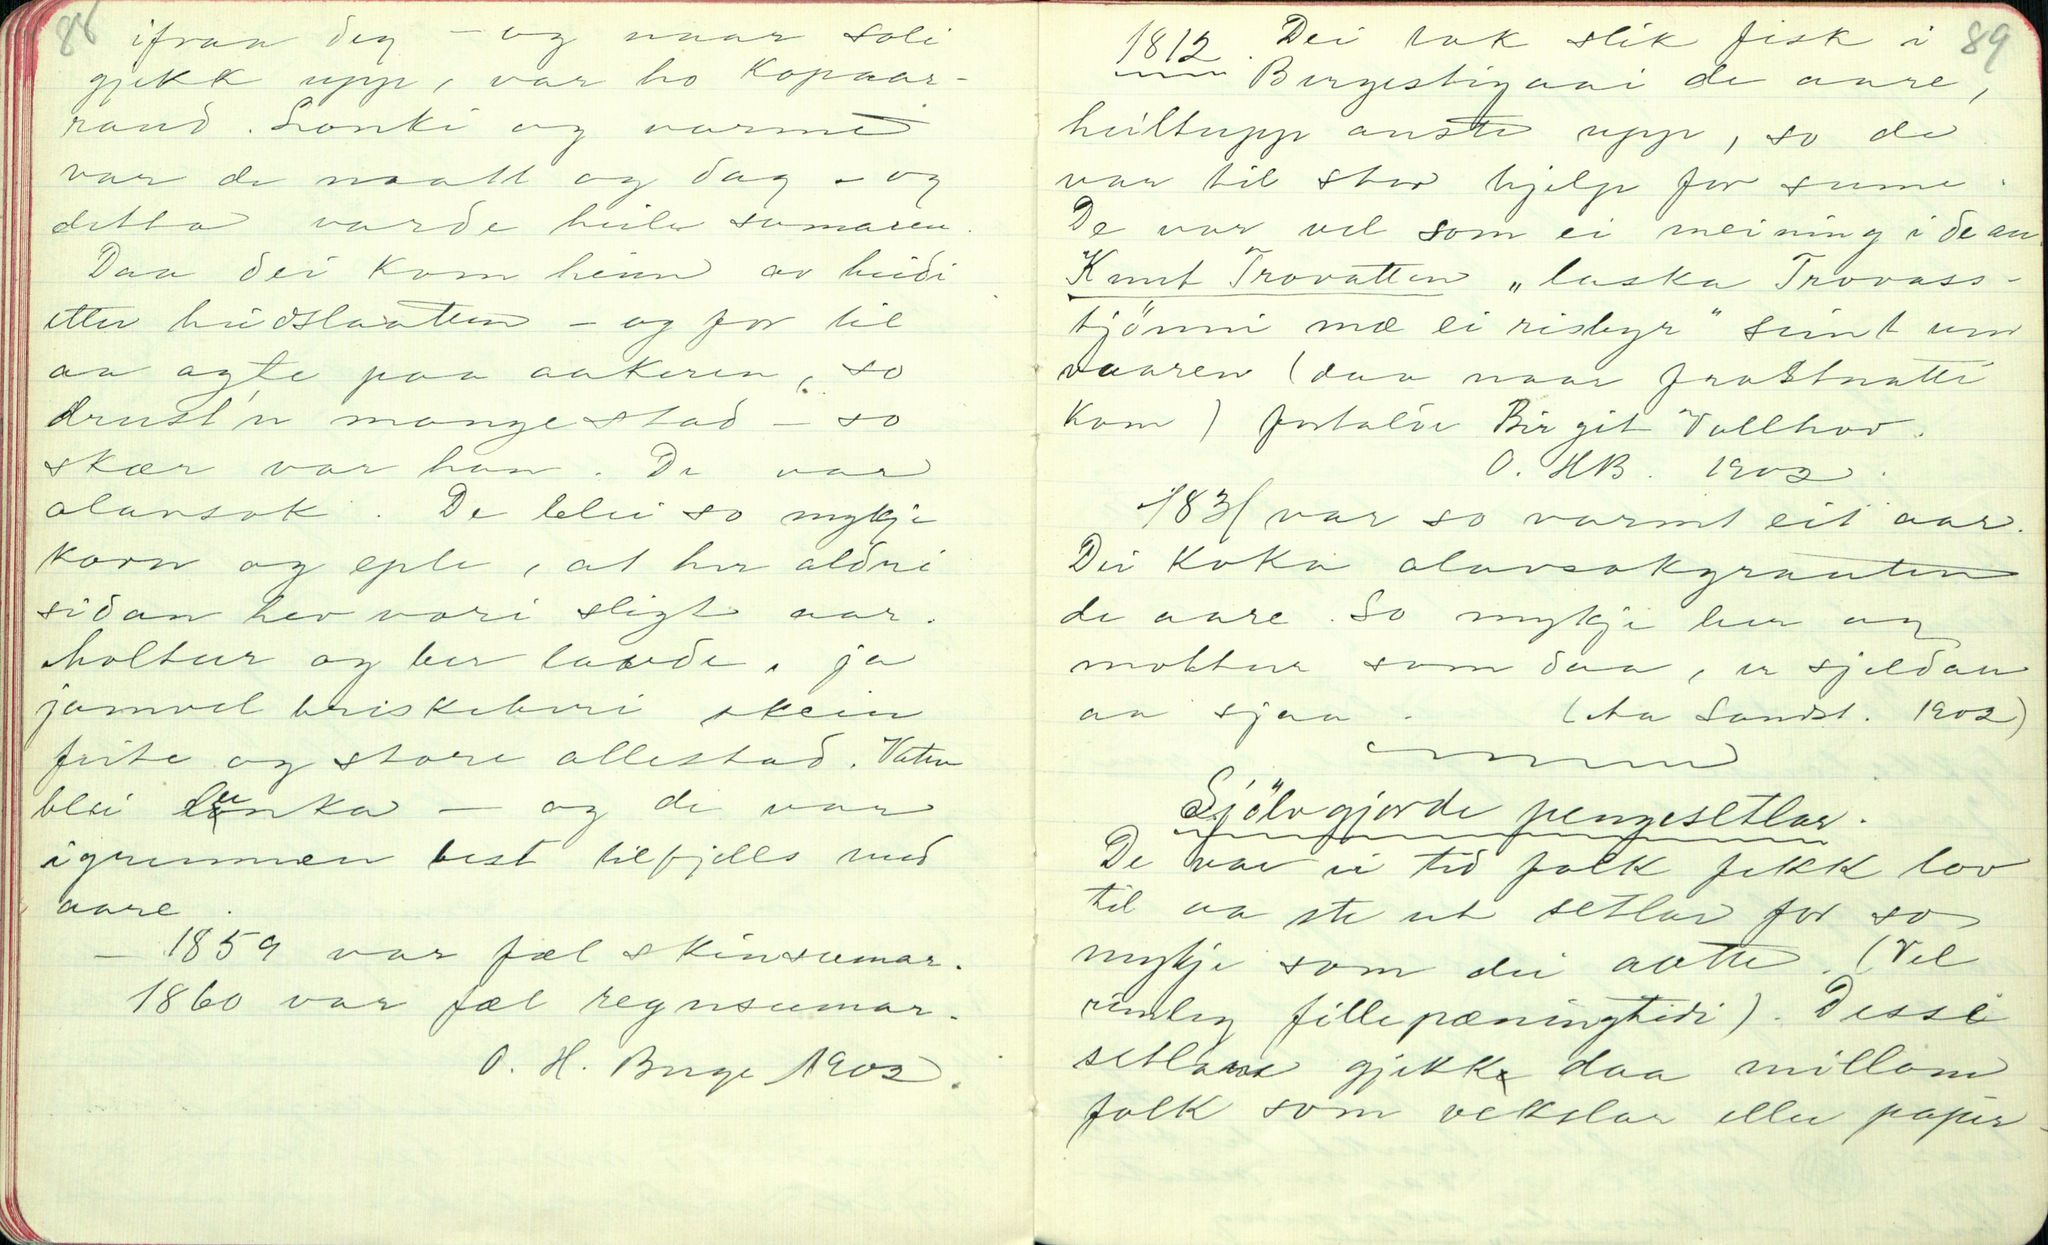 88
ifraa deg - og naar soli
gjekk upp, var ho kopaar-
raud. Lonki og varme
var de naatt og dag - og
detta varde heile sumaren.
Daa dei kom heim av heidi
etter heidslaatten - og for til
aa agte paa aakeren, so
drust'n mange stad - so
skær var han. De var
olavsok. De blei so mykje
korn og eple, at her aldri
sidan hev vori sligt aar.
Moltur og ber lavde, ja
jamvel briskeberi skein
feite og store allestad. Vatn
blei lunka - og de var
igrunnen best tilfjells med
aare.
- 1859 var fæl skinsumar.
1860 var fæl regnsumar.
O. H. Berge 1902.
89
1812. Dei tok slik fisk i
Bergestigaai de aare,
heiltupp auste upp, so de
var til stor hjelp for sume.
De var vel som ei meining i de au.
Knut Trovatten "laska Trovass-
tjönni mæ ei risbyr" seint um
vaaren (daa naar frostnatti
kom) fortalde Birgit Vallhov.
O. HB. 1902.
1831 var so varmt eit aar.
Dei koka olavsokgrauten
de aare. So mykje ber og
moltur som daa, er sjeldan
aa sjaa. (Aa Sandst. 1902)
Sjölvgjorde pengesetlar.
De var ei tid folk fekk lov
til aa ste ut setlar for so
mykje som dei aatte. (Vel
rimleg fillepæningtidi). Desse
setlane gjekk daa millom
folk som vekslar eller papir-